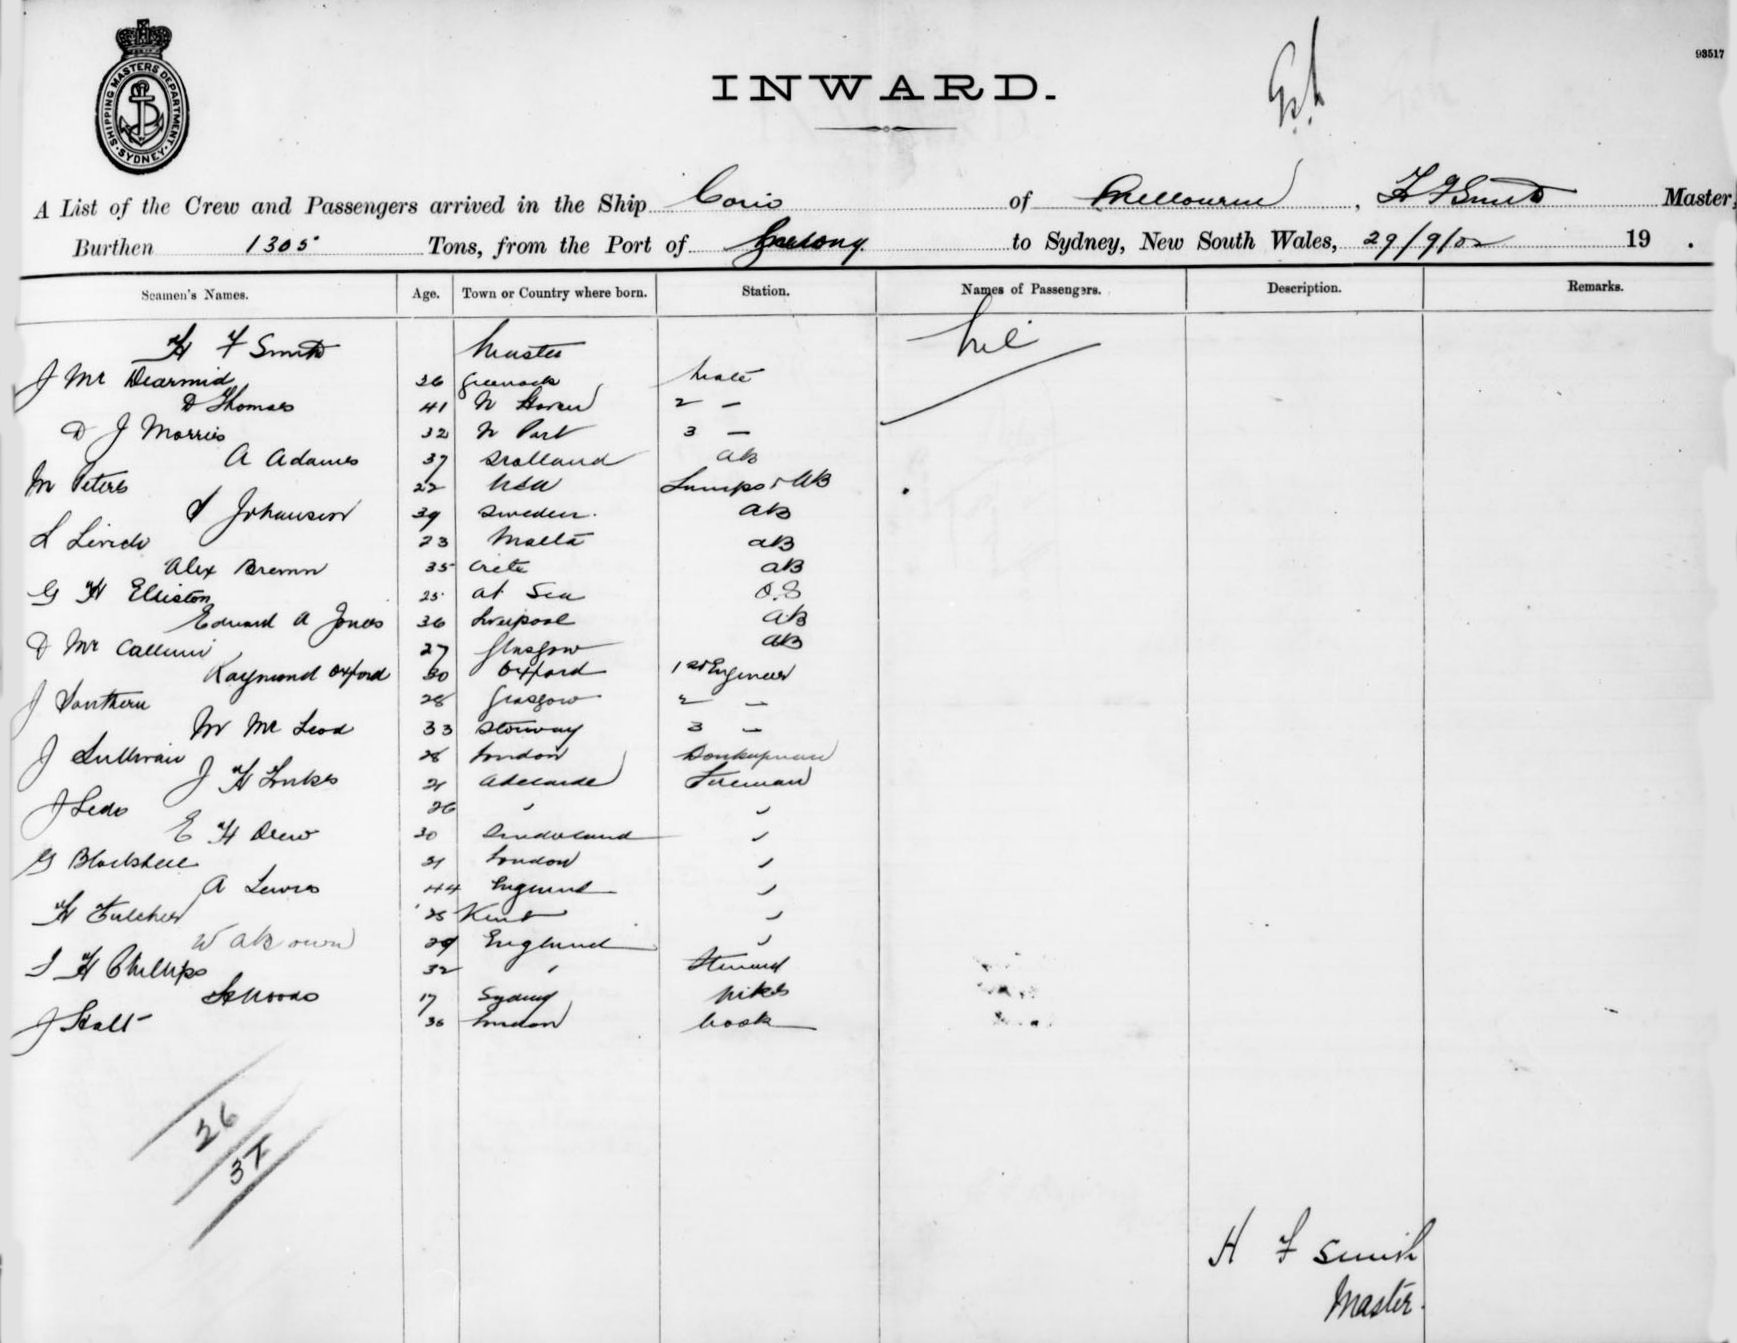 93517
SHIPPING MASTERS DEPARTMENT
SYDNEY
INWARD.
A List of the Crew and Passengers arrived in the Ship Corio of Melbourne, H F Smith Master,
Burthen 1305 Tons, from the Port of Geelong to Sydney, New South Wales, 29/9/02 19 .
Seamen's Names. Age. Town or Country where born. Station. Names of Passengers. Description. Remarks.
H F Smith Master Nil
J Mc Dearmid 36 Greenock Mate
D Thomas 41 N Haven 2 —
D J Morris 32 N Port 3 —
A Adames 37 AB
M Peters 22 Lamps & AB
Johansen 39 Sweden. AB
L 23 Malta AB
Alex Bremn 35 Crete AB
G H Elliston 25 At Sea O.S
Edward A Jones 36 Liverpool AB
D Mc Callum 27 Glasgow AB
Raymond Oxford 30 Oxford 1st Engineer
J 28 Glasgow 2 —
M Mc Leod 33 Storway 3 —
J Sullivan 28 London Donkeyman
J H 21 Adelaide Fireman
J Ledo 26 " "
E H Drew 30 Sunderland "
G 31 London "
A Lewis 44 England "
H Fulcher 25 Kent "
W 29 England "
H Phillips 32 " Steward
Woods 17 Sydney
J Stalt 36 London Cook
26
H F Smith
Master.